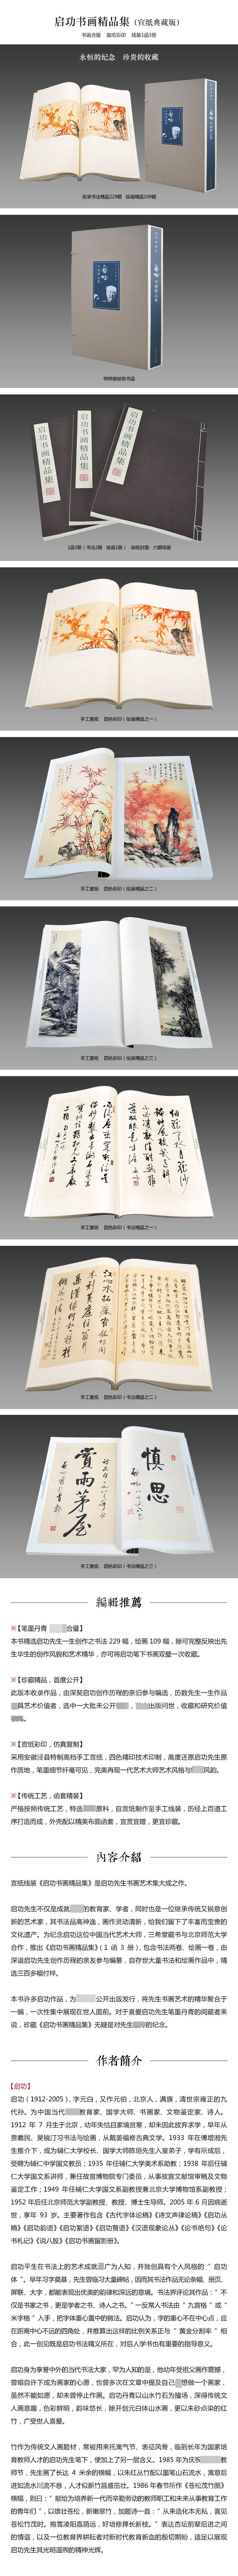 启功书画精品集（宣纸典藏版）
书画合璧 宣纸彩印 线装1函3册
永恒的纪念 珍贵的收藏
收录书法精品229幅 绘画精品109幅
特种装帧布书函
启功书画精品集
启功书画精品集
启功书画精品集
1函3册（书法2册 绘画1册） 染纸封面 六眼线装
手工宣纸 四色彩印（绘画精品之一）
手工宣纸 四色彩印（绘画精品之二）
手工宣纸 四色彩印（绘画精品之三）
手工宣纸 四色彩印（书法精品之一）
手工宣纸 四色彩印（书法精品之二）
賞雨茅屋
慎思
手工宣纸 四色彩印（书法精品之三）
編輯推薦
※【笔墨丹青 合璧】
本书精选启功先生一生创作之书法 229 幅，绘画 109 幅，除可完整反映出先
生毕生的创作风貌和艺术精华，亦可将启功笔下书画双璧一次收藏。
※【珍藏精品，首度公开】
此版本收录作品，由深契启功创作历程的亲旧参与编选，历数先生一生作品
具艺术价值者，选中一大批未公开 ， 出版问世，收藏和研究价值
。
※【宣纸彩印，仿真复制】
采用安徽泾县特制高档手工宣纸，四色精印技术印制，高度还原启功先生原
作质地，笔墨细节纤毫可见，完美再现一代艺术大师艺术风格与 风韵。
※【传统工艺，函套精装】
严格按照传统工艺，特选 原料，自宣纸制作至手工线装，历经上百道工
序打造而成，外壳配以精美布面函套，宜赏宜赠，更宜珍藏。
內容介紹
宣纸线装《启功书画精品集》是启功先生书画艺术集大成之作。
启功先生不仅是成就 的教育家、学者，同时也是一位继承传统又锐意创
新的艺术家，其书法品高神逸，画作灵动清新，给我们留下了丰富而宝贵的
文化遗产。为纪念启功这位中国当代艺术大师，三希堂藏书与北京师范大学
合作，推出《启功书画精品集》（1 函 3 册），包含书法两卷、绘画一卷，由
深谙启功先生创作历程的亲友参与编纂，自存世大量书法和绘画作品中，精
选三百多幅付梓。
本书许多启功作品，为 公开出版发行，将先生书画艺术的精华聚合于
一编，一次性集中展现在世人面前。对于喜爱启功先生笔墨丹青的阅藏者来
说，珍藏《启功书画精品集》无疑是对先生 的纪念。
作者簡介
【启功】
启功（1912-2005），字元白，又作元伯，北京人，满族，清世宗雍正的九
代孙。为中国当代 教育家、国学大师、书画家、文物鉴定家、诗人。
1912 年 7 月生于北京，幼年失怙且家境贫寒，却未因此放弃求学，早年从
贾羲民、吴镜汀习书法与绘画，从戴姜福修古典文学。1933 年在傅增湘先
生推介下，成为辅仁大学校长、国学大师陈垣先生入室弟子，学有所成后，
受聘为辅仁中学国文教员；1935 年任辅仁大学美术系助教；1938 年后任辅
仁大学国文系讲师，兼任故宫博物院专门委员，从事故宫文献馆审稿及文物
鉴定工作；1949 年任辅仁大学国文系副教授兼北京大学博物馆系副教授；
1952 年后任北京师范大学副教授、教授、博士生导师。2005 年 6 月因病逝
世，享年 93 岁。主要著作包含《古代字体论稿》《诗文声律论稿》《启功丛
稿》《启功韵语》《启功絮语》《启功赘语》《汉语现象论丛》《论书绝句》《论
书札记》《说八股》《启功书画留影册》。
启功平生在书法上的艺术成就蔚广为人知，并独创具有个人风格的“启功
体”。早年习字奠基，先生曾临习大量碑帖，因而其书法作品无论条幅、册页、
屏联、大字，都能表现出优美的韵律和深远的意境。书法界评论其作品：“不
仅是书家之书，更是学者之书、诗人之书。”一反常人书法由“九宫格”或“
米字格”入手，把字体重心置中的做法。启功认为，字的重心不在中心点，应
在距离中心不远的四角处，并推算出这样的比例关系正与“黄金分割率”相
合，此一创见既是启功书法精义所在，对后人学书也有重要的指导意义。
启功身为享誉中外的当代书法大家，罕为人知的是，他幼年受祖父濡作震撼，
曾暗自许下成为画家的心愿，也曾多次在文章中提及自己 想做一个画家，
虽然不能如愿，却未曾停止作画。启功丹青以山水竹石为擅场，深得传统文
人画意趣，色彩鲜明，韵味悠长，除开创元白体山水画，更以朱砂点染的红
竹，广受世人喜爱。
竹作为传统文人画题材，常被用来托寓气节、表征风骨，临到长年为国家培
育教师人才的启功先生笔下，便加上了另一层含义。1985 年为庆祝 教
师节，先生画了长达 4 米余的横幅，以朱红丛竹配以墨笔山石流水，寓意后
进如流水川流不息，人才似新竹昌盛茁壮。1986 年春节所作《苍松茂竹图》
横幅，则曰：“献给为培养新一代而辛勤劳动的教师职工和未来从事教育工作
的青年们”，以雄壮苍松、新嫩翠竹，加题诗一首：“从来造化本无私，喜见
苍松竹茂时。抱雪凌阳嘉荫远，好培修箨长新枝。”表达杏坛前辈后进之间
的情谊，以及一位教育界耕耘者对新时代教育新血的殷切期盼，适足以展现
启功先生其光明温煦的精神光辉。